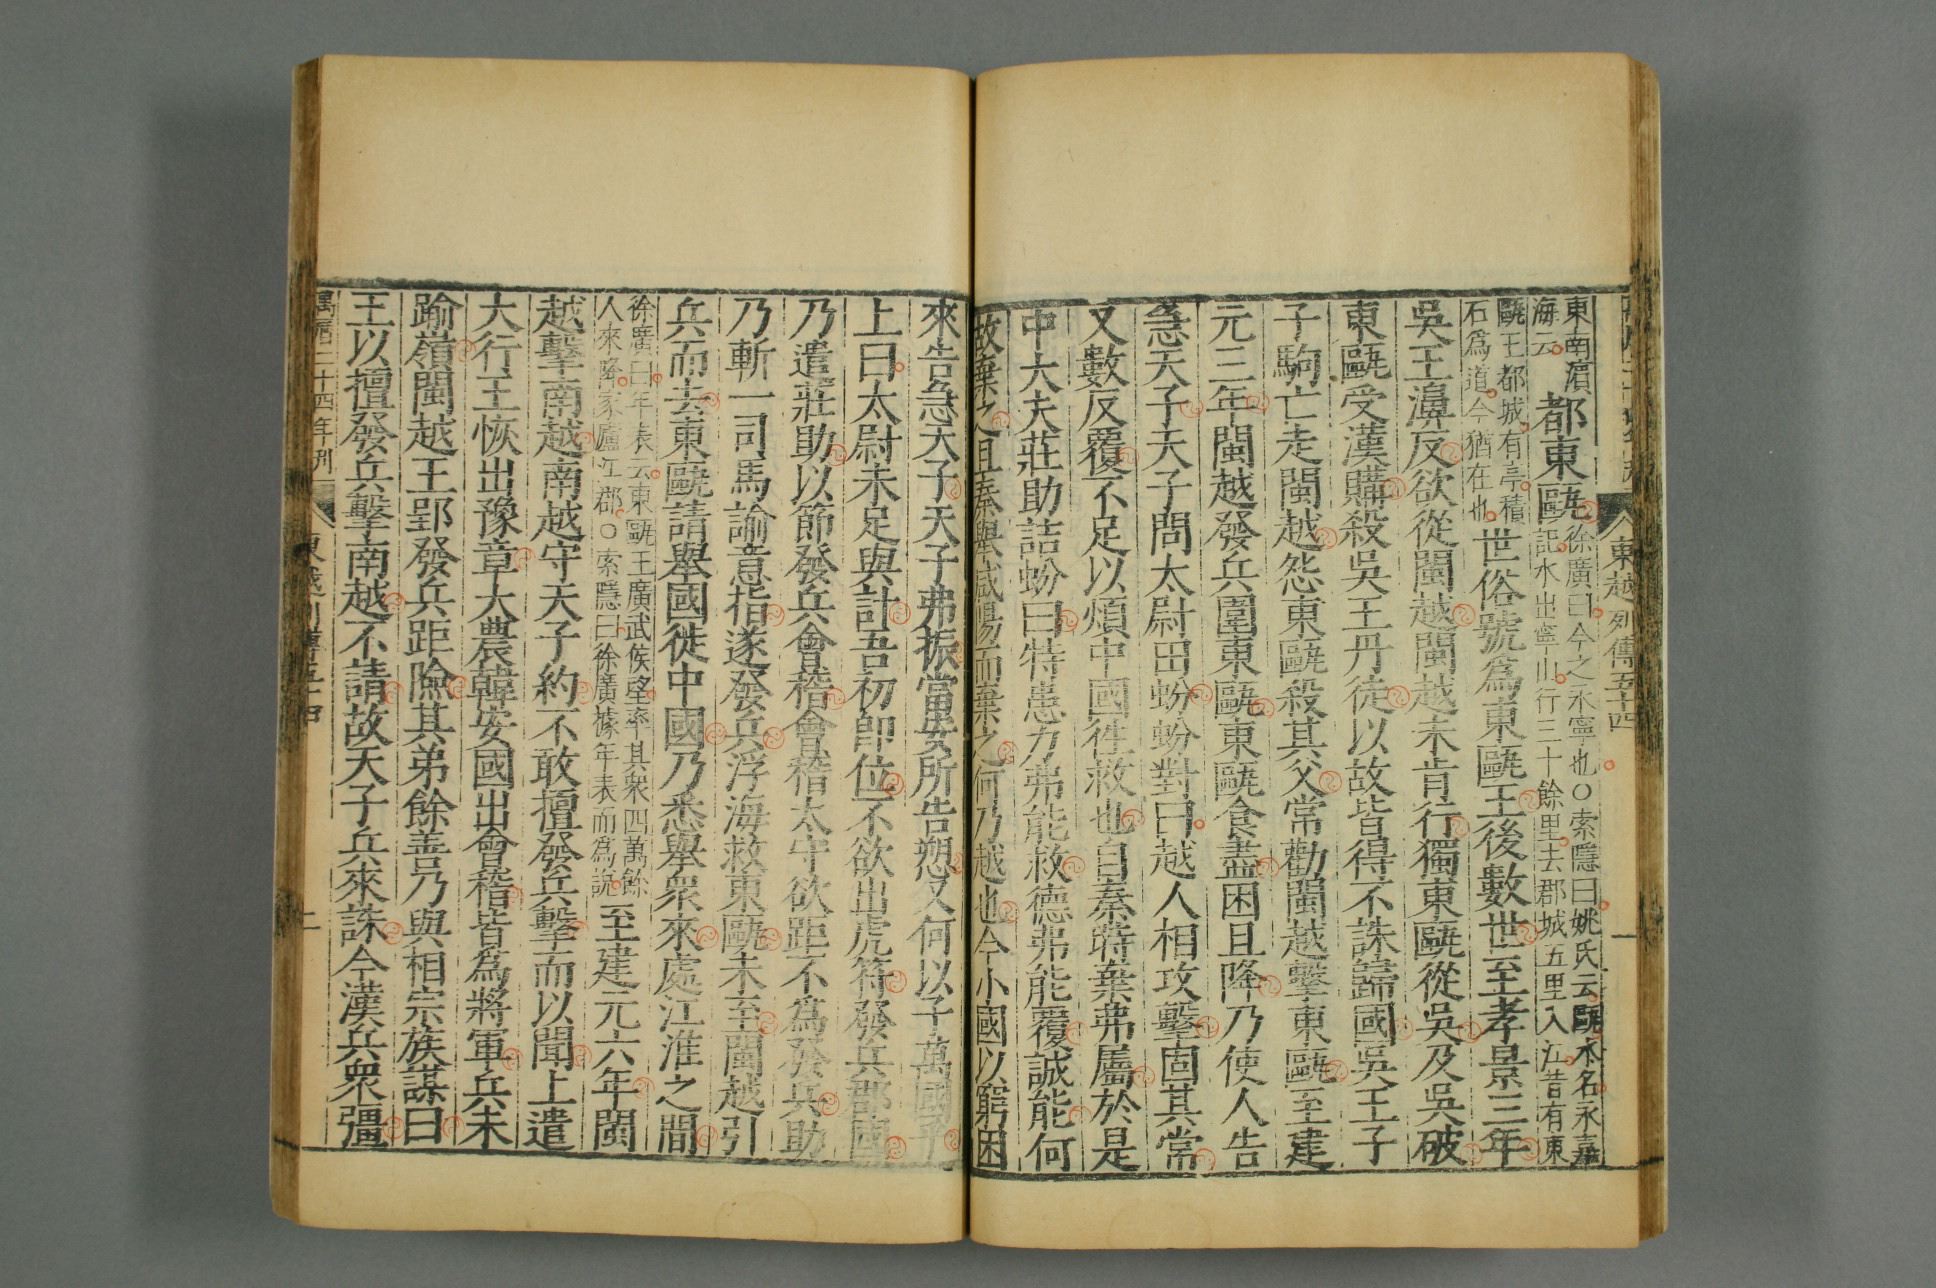 東越列傳五十四
一
東南濵
海云
都東甌
徐廣曰今之永寧也○索隱曰姚氏云甌水名永嘉
記水出寧山行三十餘里去郡城五里入江昔有東
甌王都城有亭積
石爲道今猶在也
世俗號爲東甌王後數世至孝景三年
吳王濞反欲從閩越閩越未肯行獨東甌從吳及吳破
東甌受漢購殺吳王丹徒以故皆得不誅歸國吳王子
子駒亡走閩越怨東甌殺其父常勸閩越擊東甌至建
元三年閩越發兵圍東甌東甌食盡困且降乃使人告
急天子天子問太尉田蚡蚡對曰越人相攻擊固其常
又數反覆不足以煩中國徃救也自秦時棄弗屬於是
中大夫莊助詰蚡曰特患力弗能救德弗能覆誠能何
故棄之且秦舉咸陽而棄之何乃越也今小國以窮困
來告急天子天子弗振當安所告愬又何以子萬國乎
上曰太尉未足與計吾初卽位不欲出虎符發兵郡國
乃遣莊助以節發兵會稽會稽太守欲距不爲發兵助
乃斬一司馬諭意指遂發兵浮海救東甌未至閩越引
兵而去東甌請舉國徙中國乃悉舉衆來處江淮之間
徐廣曰年表云東甌王廣武侯望率其衆四萬餘
人來降家廬江郡○索隱曰徐廣據年表而爲說
至建元六年閩
越擊南越南越守天子約不敢擅發兵擊而以聞上遣
大行王恢出豫章大農韓安國出會稽皆爲將軍兵未
踰嶺閩越王郢發兵距險其弟餘善乃與相宗族謀曰
王以擅發兵擊南越不請故天子兵來誅今漢兵衆彊
萬曆二十四年刊
東越列傳五十四
二